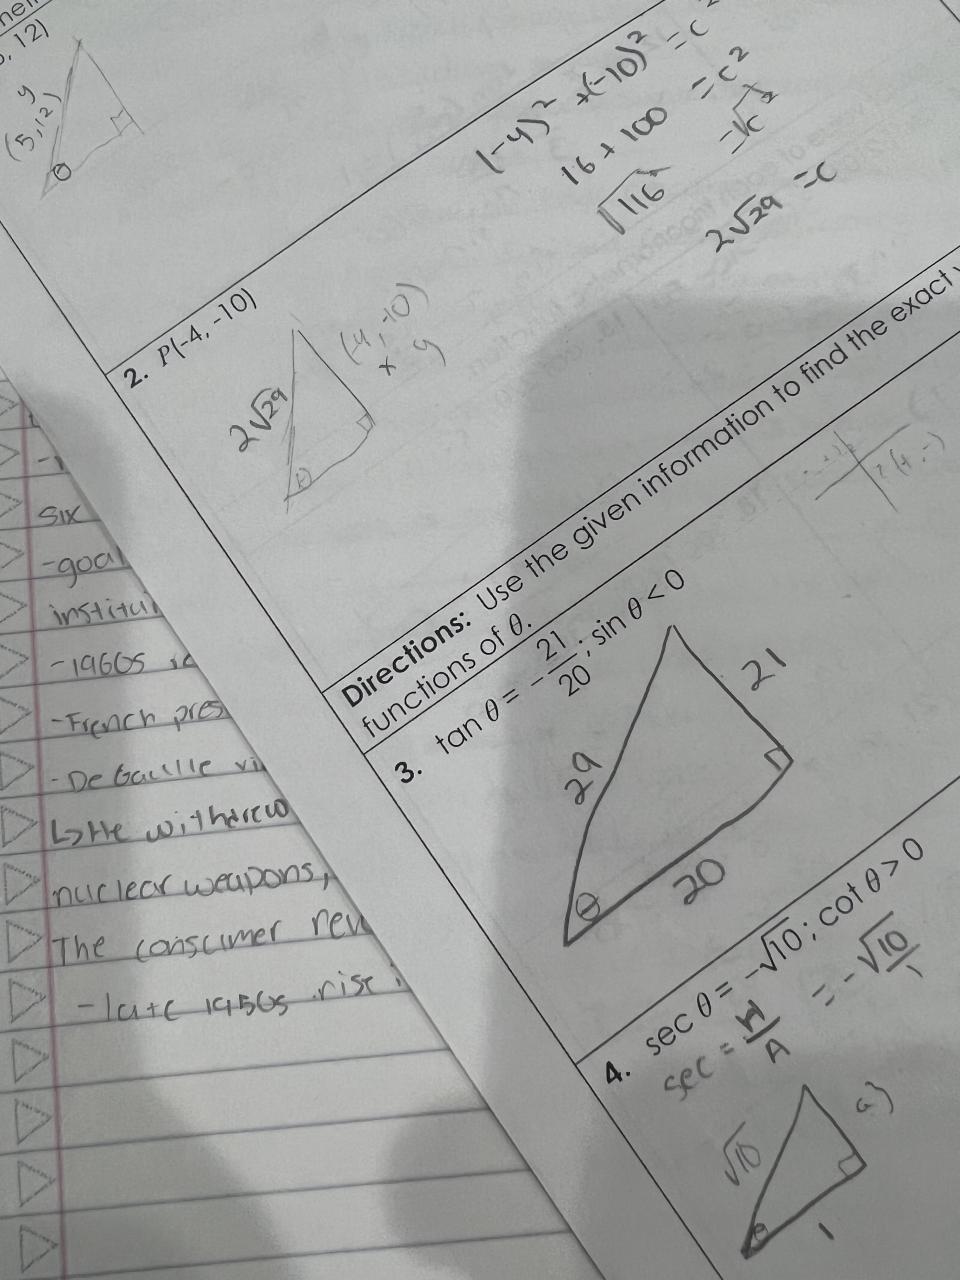 , 12)
y
(5,12)
θ
(-4)² +(-10)² =c²
16+100 =c²
√116 =√c²
2√29 =c
2. P(-4, -10)
2√29
(-4,-10)
x y
θ
Directions: Use the given information to find the exact
functions of θ.
3. tan θ = -21/20; sin θ < 0
29
21
20
θ
4. sec θ = -√10; cot θ > 0
sec = H/A = -√10/1
√10
a)
1
θ
six
-goal
-1960s
-French pres
-De Gaulle
↳He withdrew
nuclear weapons,
The consumer rev
-late 1950s rise